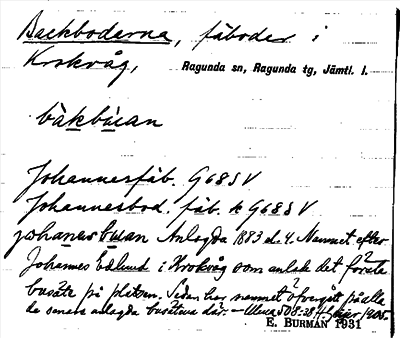 Backboderna, fäboder i
Krokvåg, Ragunda sn, Ragunda tg, Jämtl. l.
bàkbùan
Johannesfäb. G68SV
Johannesbod. fäb. h G68SV
johanesbuan Anlagda 1883 el. 4. Namnet efter
Johannes Edlund i Krokvåg som anlade det första
busäte på platsen. Sedan har namnet övergått på alla
de senare anlagda busätena där.
E. BURMAN 1931